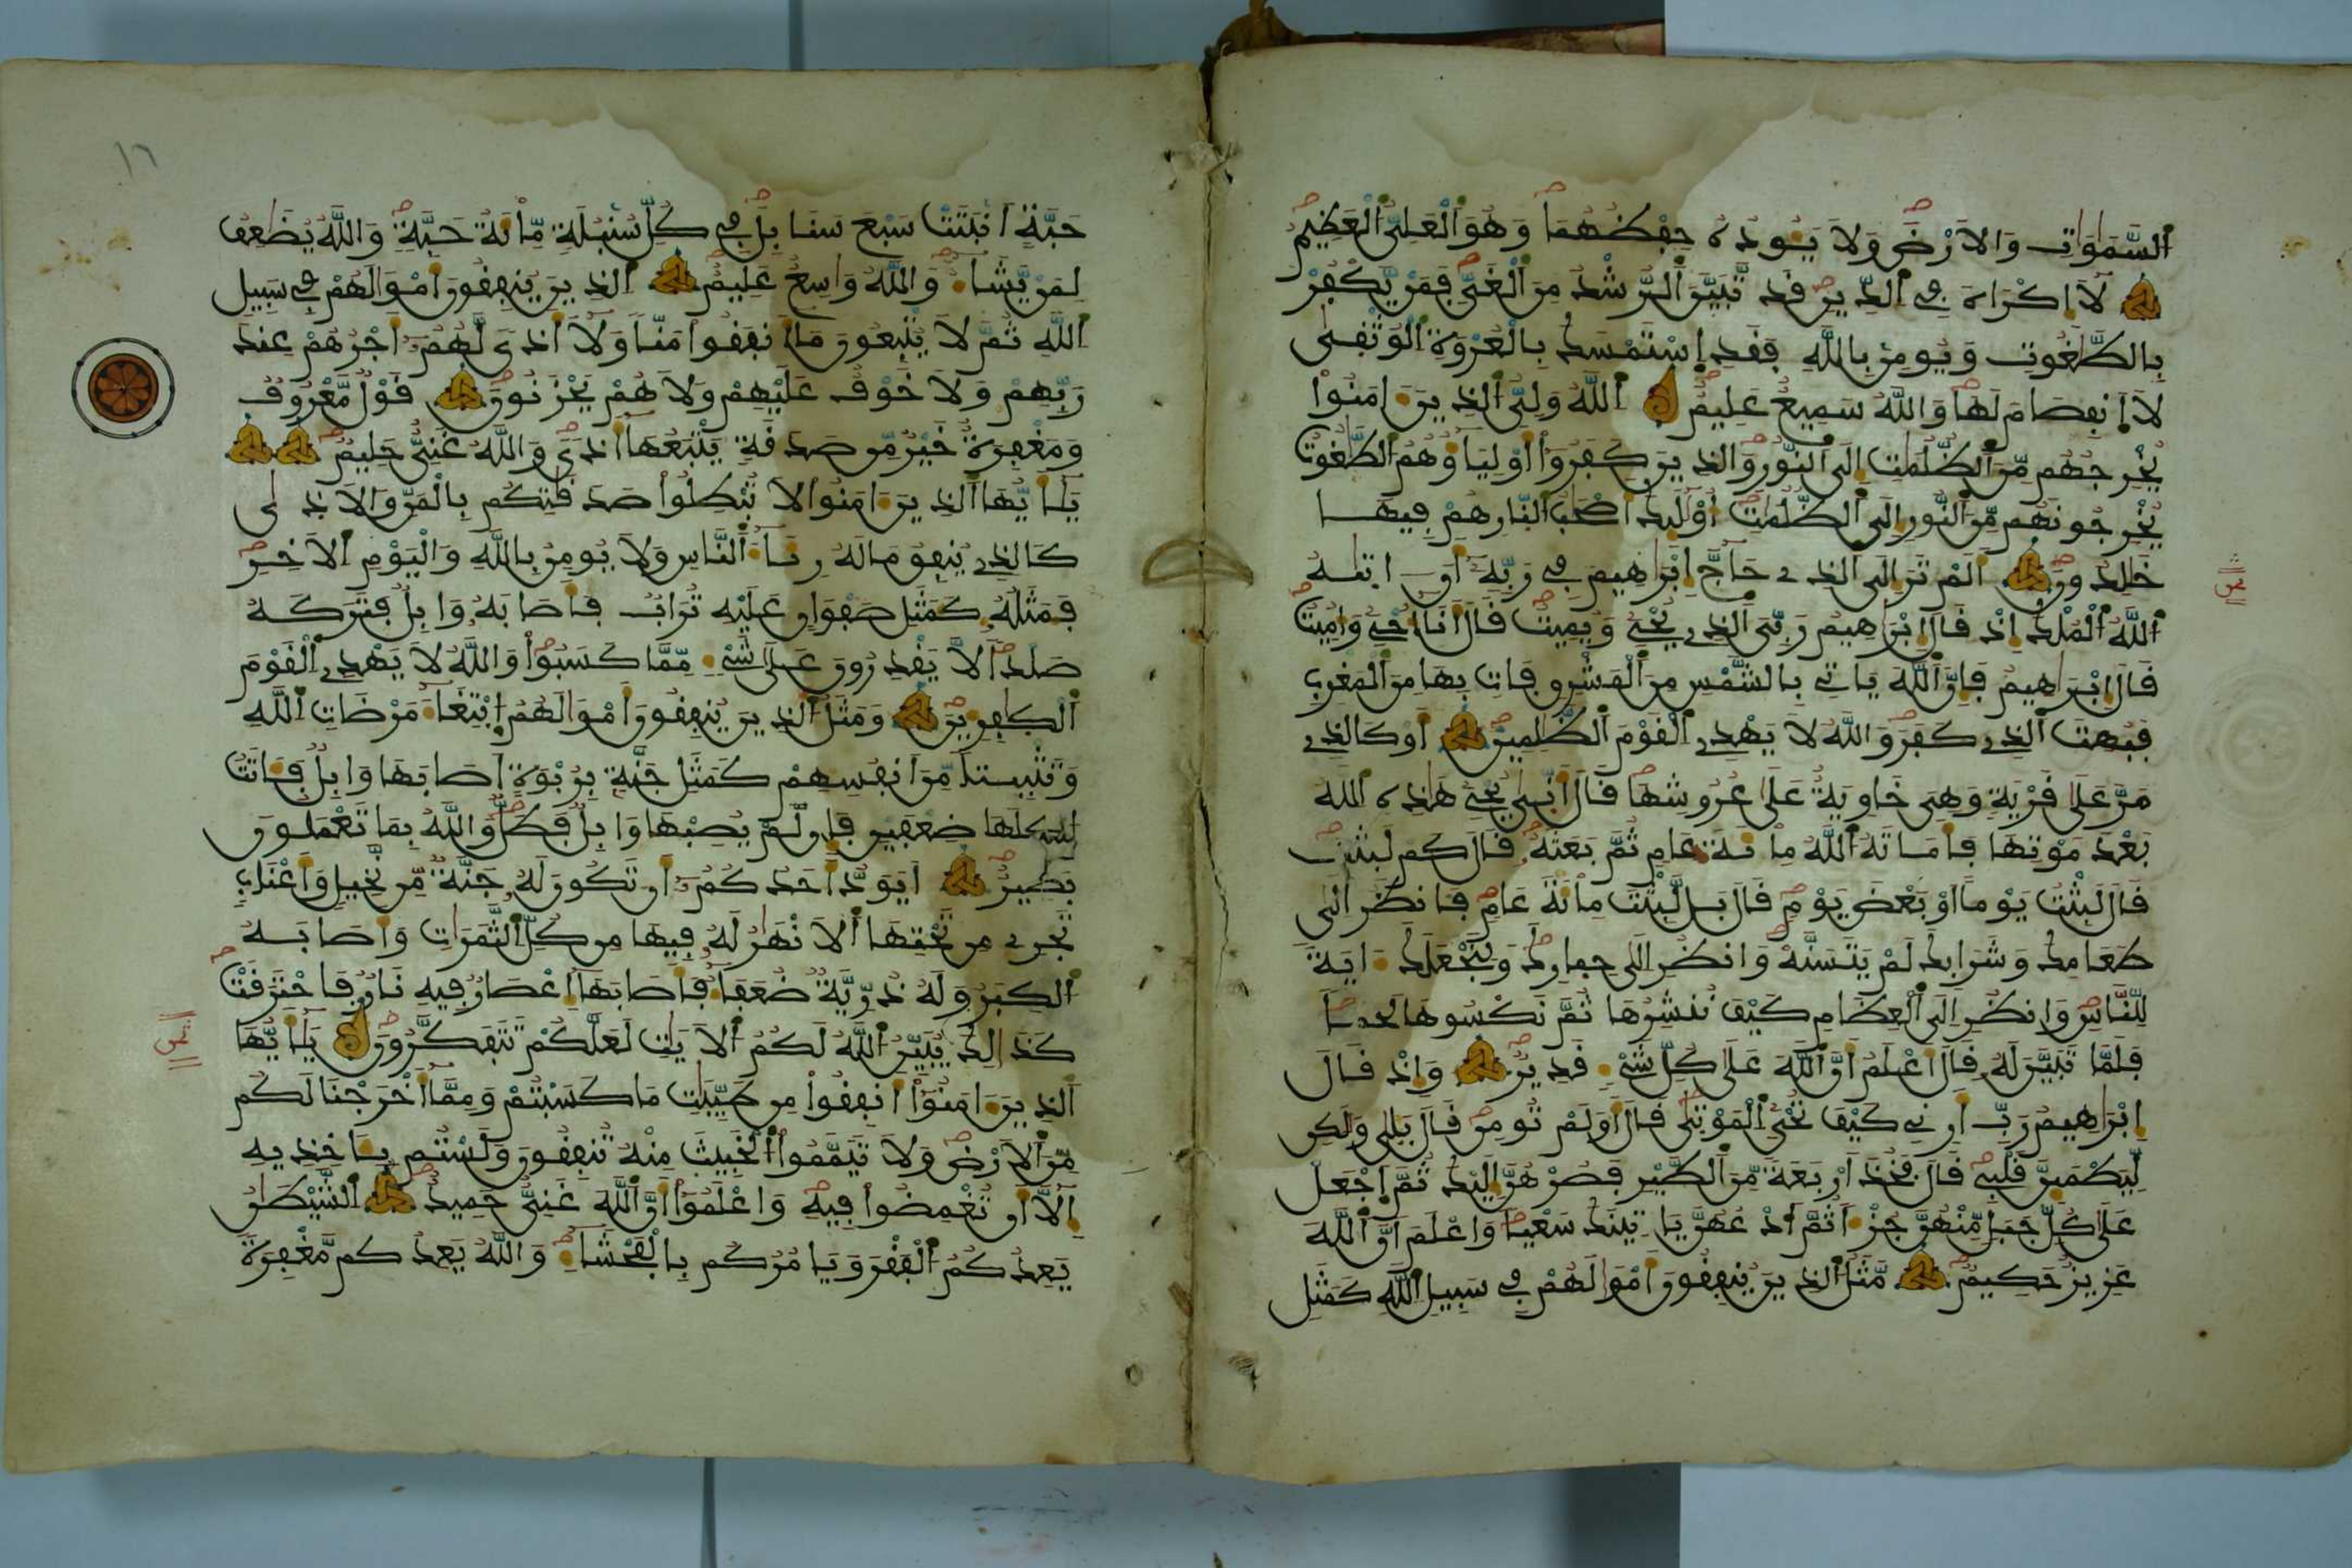 السَّمَٰوَٰتِ وَالَارْضَ وَلَا يَـُٔودُهُۥ حِفْظُهُمَا وَهُوَ ألْعَلِىُّ ألْعَظِيمُ
لَآ إِكْرَاهَ فِے ألدِّينِ قَد تَّبَيَّنَ ألرُّشْدُ مِنَ ألْغَىِّ فَمَنْ يَّكْفُرْ
بِالطَّٰغُوتِ وَيُومِنۢ بِاللَّهِ فَقَدِ إِسْتَمْسَكَ بِالْعُرْوَةِ ألْوُثْقَىٰ
لَا إَنفِصَامَ لَهَا وَاللَّهُ سَمِيعٌ عَلِيمٌ أللَّهُ وَلِىُّ ألذِينَ ءَامَنُواْ
يُخْرِجُهُم مِّنَ ألظُّلُمَٰتِ إِلَى ألنُّورِ وَالذِينَ كَفَرُوٓاْ أَوْلِيَآؤُهُمُ ألطَّٰغُوتُ
يُخْرِجُونَهُم مِّنَ ألنُّورِ إِلَى ألظُّلُمَٰتِ أُوْلَٰٓئِكَ أَصْحَٰبُ ألنّارِ هُمْ فِيهَا
خَٰلِدُونَ أَلَمْ تَرَ إِلَى ألذِے حَآجَّ إِبْرَٰهِيمَ فِے رَبِّهِۦٓ أَنَ ـ اتَىٰهُ
أللَّهُ ألْمُلْكَ إِذْ قَالَ إِبْرَٰهِيمُ رَبِّيَ ألذِے يُحْيِۦ وَيُمِيتُ قَالَ أَنَآ أُحْيِۦ وَأُمِيتُ
قَالَ إِبْرَٰهِيمُ فَإِنَّ أللَّهَ يَاتِے بِالشَّمْسِ مِنَ ألْمَشْرِقِ فَاتِ بِهَا مِنَ ألْمَغْرِبِ
فَبُهِتَ ألذِے كَفَرَ وَاللَّهُ لَا يَهْدِے ألْقَوْمَ ألظَّٰلِمِينَ أَوْ كَالذِے
مَرَّ عَلَىٰ قَرْيَةٍ وَهِىَ خَاوِيَةٌ عَلَىٰ عُرُوشِهَا قَالَ أَنّىٰ يُحْيِۦ هَٰذِهِ أللَّهُ
بَعْدَ مَوْتِهَا فَأَمَاتَهُ أللَّهُ مِاْئَةَ عَامٍ ثُمَّ بَعَثَهُۥ قَالَ كَمْ لَبِثْتَ
قَالَ لَبِثْتُ يَوْماً أَوْ بَعْضَ يَوْمٍ قَالَ بَل لَّبِثْتَ مِاْئَةَ عَامٍ فَانظُرِ الَىٰ
طَعَامِكَ وَشَرَابِكَ لَمْ يَتَسَنَّهْ وَانظُرِ الَىٰ حِمارِكَ وَلِنَجْعَلَكَ ءَايَةً
لِّلنَّاسِ وَانظُرِ إلَى ألْعِظَامِ كَيْفَ نُنشِرُهَا ثُمَّ نَكْسُوهَا لَحْماً
فَلَمَّا تَبَيَّنَ لَهُۥ قَالَ أَعْلَمُ أَنَّ أللَّهَ عَلَىٰ كُلِّ شَىْءٍ قَدِيرٌ وَإِذْ قَالَ
إِبْرَٰهِيمُ رَبِّ أَرِنِے كَيْفَ تُحْيِ ألْمَوْتَىٰ قَالَ أَوَلَمْ تُومِن قَالَ بَلَىٰ وَلَٰكِن
لِّيَطْمَئِنَّ قَلْبِے قَالَ فَخُذَ اَرْبَعَةً مِّنَ ألطَّيْرِ فَصُرْهُنَّ إِلَيْكَ ثُمَّ إَجْعَلْ
عَلَىٰ كُلِّ جَبَلٍ مِّنْهُنَّ جُزْءاً ثُمَّ أدْعُهُنَّ يَاتِينَكَ سَعْياً وَاعْلَمَ اَنَّ أللَّهَ
عَزِيزٌ حَكِيمٌ مَّثَلُ ألذِينَ يُنفِقُونَ أَمْوَٰلَهُمْ فِے سَبِيلِ أللَّهِ كَمَثَلِ
ثمن
١٦
حَبَّةٍ اَنۢبَتَتْ سَبْعَ سَنَابِلَ فِے كُلِّ سُنۢبُلَةٍ مِّاْئَةُ حَبَّةٍ وَاللَّهُ يُضَٰعِفُ
لِمَنْ يَّشَآءُ وَاللَّهُ وَٰسِعٌ عَلِيمٌ ألذِينَ يُنفِقُونَ أَمْوَٰلَهُمْ فِے سَبِيلِ
أللَّهِ ثُمَّ لَا يُتْبِعُونَ مَآ أَنفَقُواْ مَنّاً وَلَآ أَذىً لَّهُمُۥٓ أَجْرُهُمْ عِندَ
رَبِّهِمْ وَلَا خَوْفٌ عَلَيْهِمْ وَلَا هُمْ يَحْزَنُونَ قَوْلٌ مَّعْرُوفٌ
وَمَغْفِرَةٌ خَيْرٌ مِّن صَدَقَةٍ يَتْبَعُهَآ أَذىً وَاللَّهُ غَنِىٌّ حَلِيمٌ
يَٰٓأَيُّهَا ألذِينَ ءَامَنُواْ لَا تُبْطِلُواْ صَدَقَٰتِكُم بِالْمَنِّ وَالَاذىٰ
كَالذِے يُنفِقُ مَالَهُۥ رِئَآءَ ألنَّاسِ وَلَا يُومِنُ بِاللَّهِ وَالْيَوْمِ ألَاخِرِ
فَمَثَلُهُۥ كَمَثَلِ صَفْوَانٍ عَلَيْهِ تُرَابٌ فَأَصَابَهُۥ وَابِلٌ فَتَرَكَهُۥ
صَلْداً لَّا يَقْدِرُونَ عَلَىٰ شَىْءٍ مِّمَّا كَسَبُواْ وَاللَّهُ لَا يَهْدِے ألْقَوْمَ
ألْكٰفِرِينَ وَمَثَلُ ألذِينَ يُنفِقُونَ أَمْوَٰلَهُمُ إبْتِغَآءَ مَرْضَاتِ أللَّهِ
وَتَثْبِيتاً مِّنَ اَنفُسِهِمْ كَمَثَلِ جَنَّةٍۭ بِرُبْوَةٍ اَصَابَهَا وَابِلٌ فَـَٔاتَتُ
ا۟كْلَهَا ضِعْفَيْنِ فَإِن لَّمْ يُصِبْهَا وَابِلٌ فَطَلٌّ وَاللَّهُ بِمَا تَعْمَلُونَ
بَصِيرٌ أَيَوَدُّ أَحَدُكُمُۥٓ أَن تَكُونَ لَهُۥ جَنَّةٌ مِّن نَّخِيلٍ وَأَعْنَٰبٍ
تَجْرِے مِن تَحْتِهَا ألَانْهَٰرُ لَهُۥ فِيهَا مِن كُلِّ ألثَّمَرَٰتِ وَأَصَابَهُ
ألْكِبَرُ وَلَهُۥ ذُرِّيَّةٌ ضُعَفَآءُ فَأَصَابَهَآ إِعْصَارٌ فِيهِ نَارٌ فَاحْتَرَقَتْ
كَذَٰلِكَ يُبَيِّنُ أللَّهُ لَكُمُ ألَايَٰتِ لَعَلَّكُمْ تَتَفَكَّرُونَ يَٰٓأَيُّهَا
ألذِينَ ءَامَنُوٓاْ أَنفِقُواْ مِن طَيِّبَٰتِ مَا كَسَبْتُمْ وَمِمَّآ أَخْرَجْنَا لَكُم
مِّنَ ألَارْضِ وَلَا تَيَمَّمُواْ ألْخَبِيثَ مِنْهُ تُنفِقُونَ وَلَسْتُم بِـَٔاخِذِيهِ
إِلَّآ أَن تُغْمِضُواْ فِيهِ وَاعْلَمُوٓاْ أَنَّ أللَّهَ غَنِىٌّ حَمِيدٌ ألشَّيْطَٰنُ
يَعِدُكُمُ ألْفَقْرَ وَيَامُرُكُم بِالْفَحْشَآءِ وَاللَّهُ يَعِدُكُم مَّغْفِرَةً
ثمن